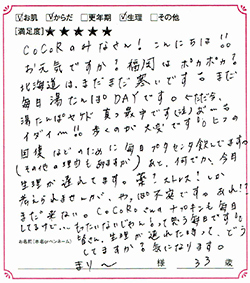 ☑お肌 ☑からだ □更年期 ☑生理 □その他
[満足度]★★★★★
CoCoRoみなさん!こんにちは!!
お元気ですか?福岡はポカポカ?
北海道は、まだまだ寒いです。まだ
毎日湯たんぽDAYです。
湯たんぽヤケド
イダイ 歩くのが大変です
回復 のために毎日プラセンタ飲んでます
(その他の理由もありますが)あと、何でか、今月
生理が遅れてます。薬?ストレス?しか
考えられませんが、やっぱ不安です。あれ!?
まだ来ない。CoCoRoさんのナプキンも毎日
してるけど、もったいないじゃん!って思う毎日です
皆さん、生理が遅れた時って、どう
してますか?気になります。
お名前(本名orペンネーム)
まり〜 様 33 歳